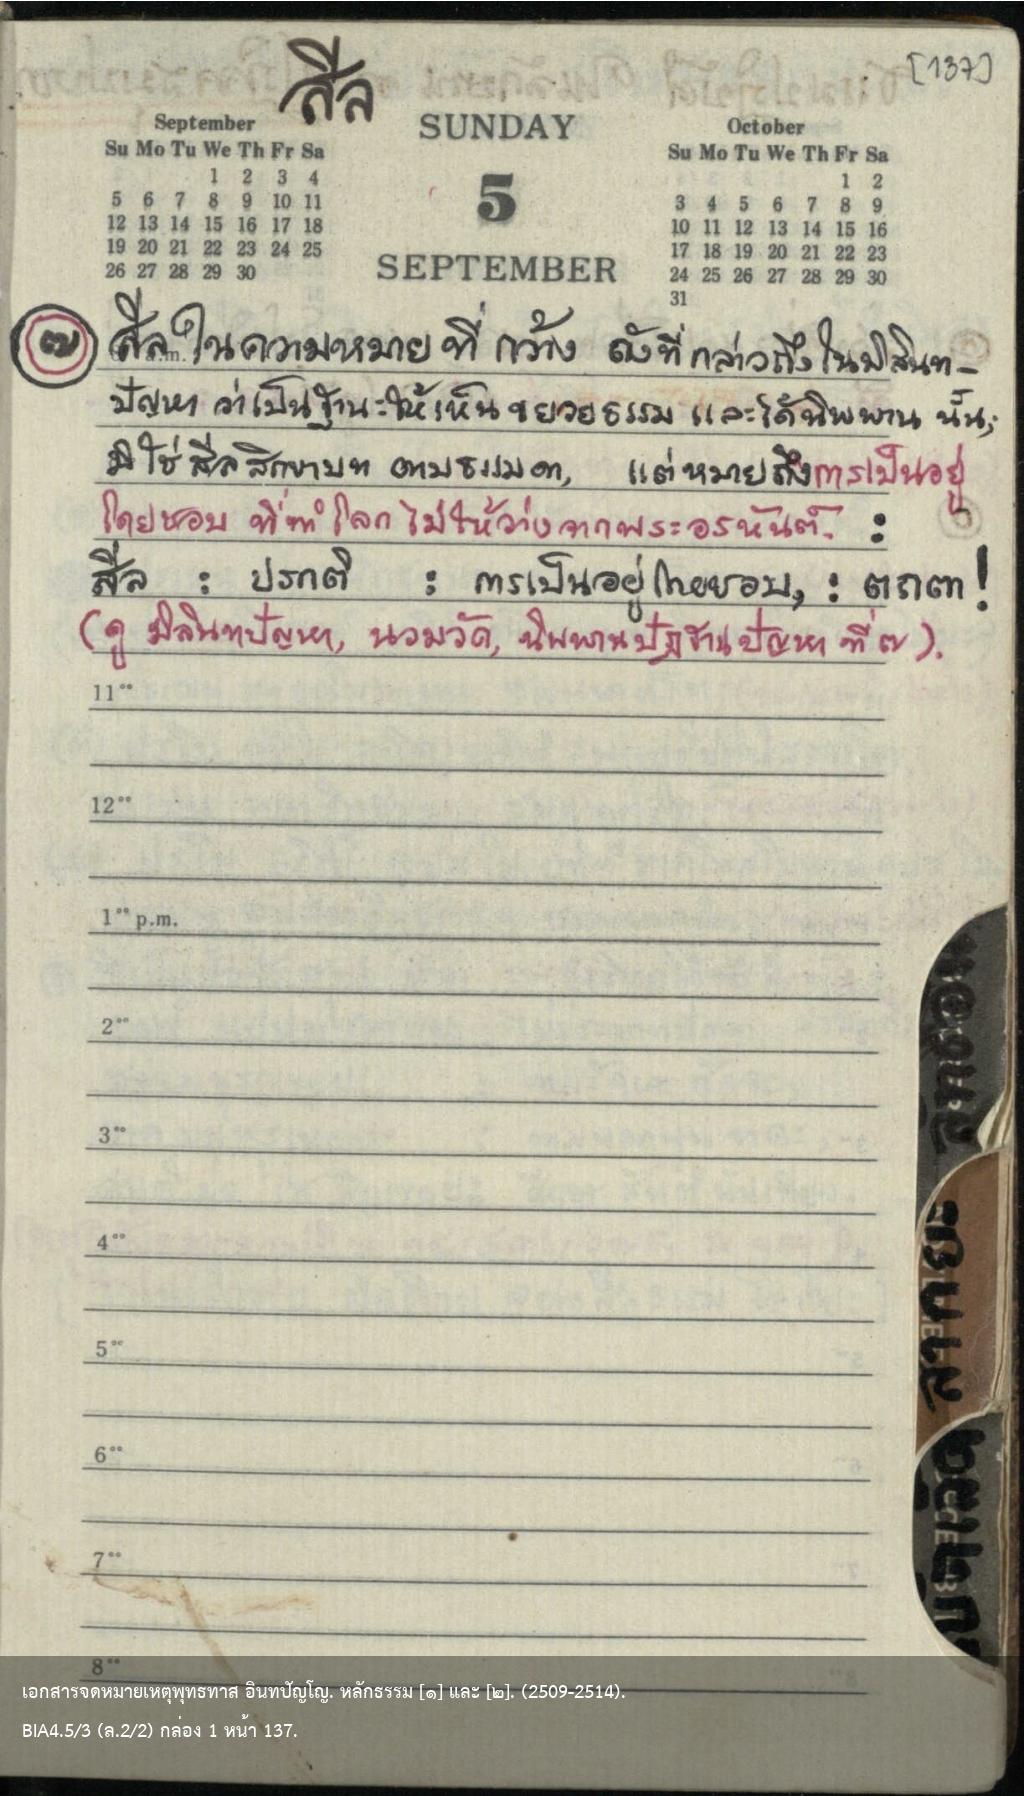 [137]
สีล
September
Su Mo Tu We Th Fr Sa
1 2 3 4
5 6 7 8 9 10 11
12 13 14 15 16 17 18
19 20 21 22 23 24 25
26 27 28 29 30
SUNDAY
5
SEPTEMBER
October
Su Mo Tu We Th Fr Sa
1 2
3 4 5 6 7 8 9
10 11 12 13 14 15 16
17 18 19 20 21 22 23
24 25 26 27 28 29 30
31
๗ สีลในความหมายที่กว้าง ดังที่กล่าวถึงในมิลินท-
ปัญหา ว่าเป็นฐานะให้เห็น ธรรม และได้นิพพาน นั้น;
มิใช่สีลสิกขาบท ตามธรรมดา, แต่หมายถึงการเป็นอยู่
โดยชอบ ที่ทำโลกไม่ให้ว่างจากพระอรหันต์. :
สีล : ปรกติ : การเป็นอยู่โดยชอบ, : ตถตา!
(ดู มิลินทปัญหา, นวมวัค, นิพพานปัฏฐานปัญหา ที่ ๗).
11⁰⁰
12⁰⁰
1⁰⁰ p.m.
2⁰⁰
3⁰⁰
4⁰⁰
5⁰⁰
6⁰⁰
7⁰⁰
8⁰⁰
เอกสารจดหมายเหตุพุทธทาส อินทปัญโญ. หลักธรรม [๑] และ [๒]. (2509-2514).
BIA4.5/3 (ล.2/2) กล่อง 1 หน้า 137.